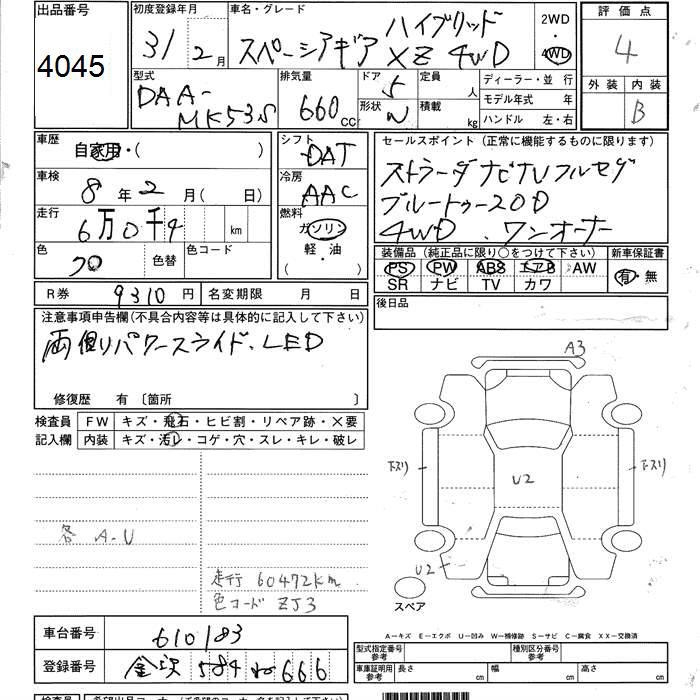 出品番号 初度登録年月 車名・グレード 2WD 評価点
4045 31年 2月 スペーシアギア ハイブリッド XZ 4WD 4WD 4
型式 排気量 ドア 定員 ディーラー・並 行 外装 内装
DAA-MK53S 660cc 5 人 モデル年式 年 B
形状 積載 kg ハンドル 左・右
車歴 自家用・( ) シフト DAT セールスポイント(正常に機能するものに限ります)
車検 8年 2月( 日) 冷房 AAC ストラーダナビTVフルセグ
走行 6万0千4 km 燃料 ガソリン ブルートゥース DVD
4WD . ワンオーナー
色 クロ 色替 色コード 軽・油 ( )
装備品(純正品に限り○をつけて下さい) 新車保証書
PS PW ABS エアB AW 有・無
SR ナビ TV カワ
R券 9310円 名変期限 月 日 後日品
注意事項申告欄(不具合内容等は具体的に記入して下さい)
両側パワースライド.LED
修復歴 有〔箇所 〕
検査員 FW キズ・飛石・ヒビ割・リペア跡・×要
記入欄 内装 キズ・汚レ・コゲ・穴・スレ・キレ・破レ
A3
下スリ U2 下スリ
各 A.U
U2
走行 60472km
色コード ZJ3
スペア
A―キズ E―エクボ U―凹み W―補修跡 S―サビ C―腐食 XX―交換済
車台番号 610183 型式指定番号 参考 種別区分番号 参考
登録番号 金沢 584 わ 666 車庫証明用 参考 長さ 幅 高さ